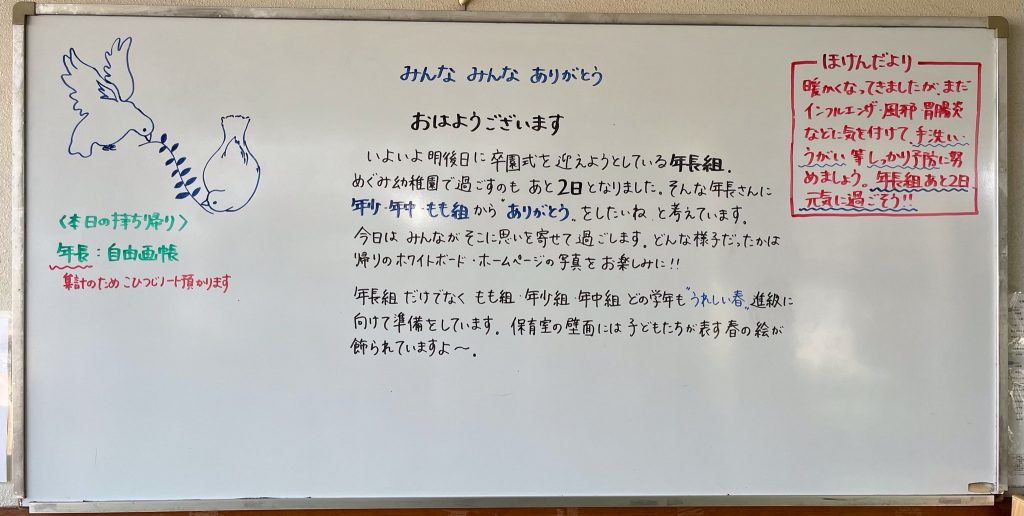 みんな みんな ありがとう
おはようございます
いよいよ 明後日に 卒園式を 迎えようとしている 年長組.
めぐみ幼稚園で過ごすのも あと2日となりました。そんな年長さんに
年少・年中・もも組から"ありがとう"をしたいね と考えています。
今日は みんながそこに思いを寄せて過ごします。どんな様子だったかは
帰りのホワイトボード・ホームページの写真をお楽しみに!!
年長組だけでなく もも組・年少組・年中組 どの学年も"うれしい春"進級に
向けて準備をしています。保育室の壁面には子どもたちが表す春の絵が
飾られていますよ〜.
〈本日の持ち帰り〉
年長:自由画帳
集計のため こひつじノート預かります
ほけんだより
暖かくなってきましたが、まだ
インフルエンザ・風邪・胃腸炎
などに気を付けて、手洗い・
うがい 等 しっかり予防に努
めましょう。年長組あと2日
元気に過ごそう!!